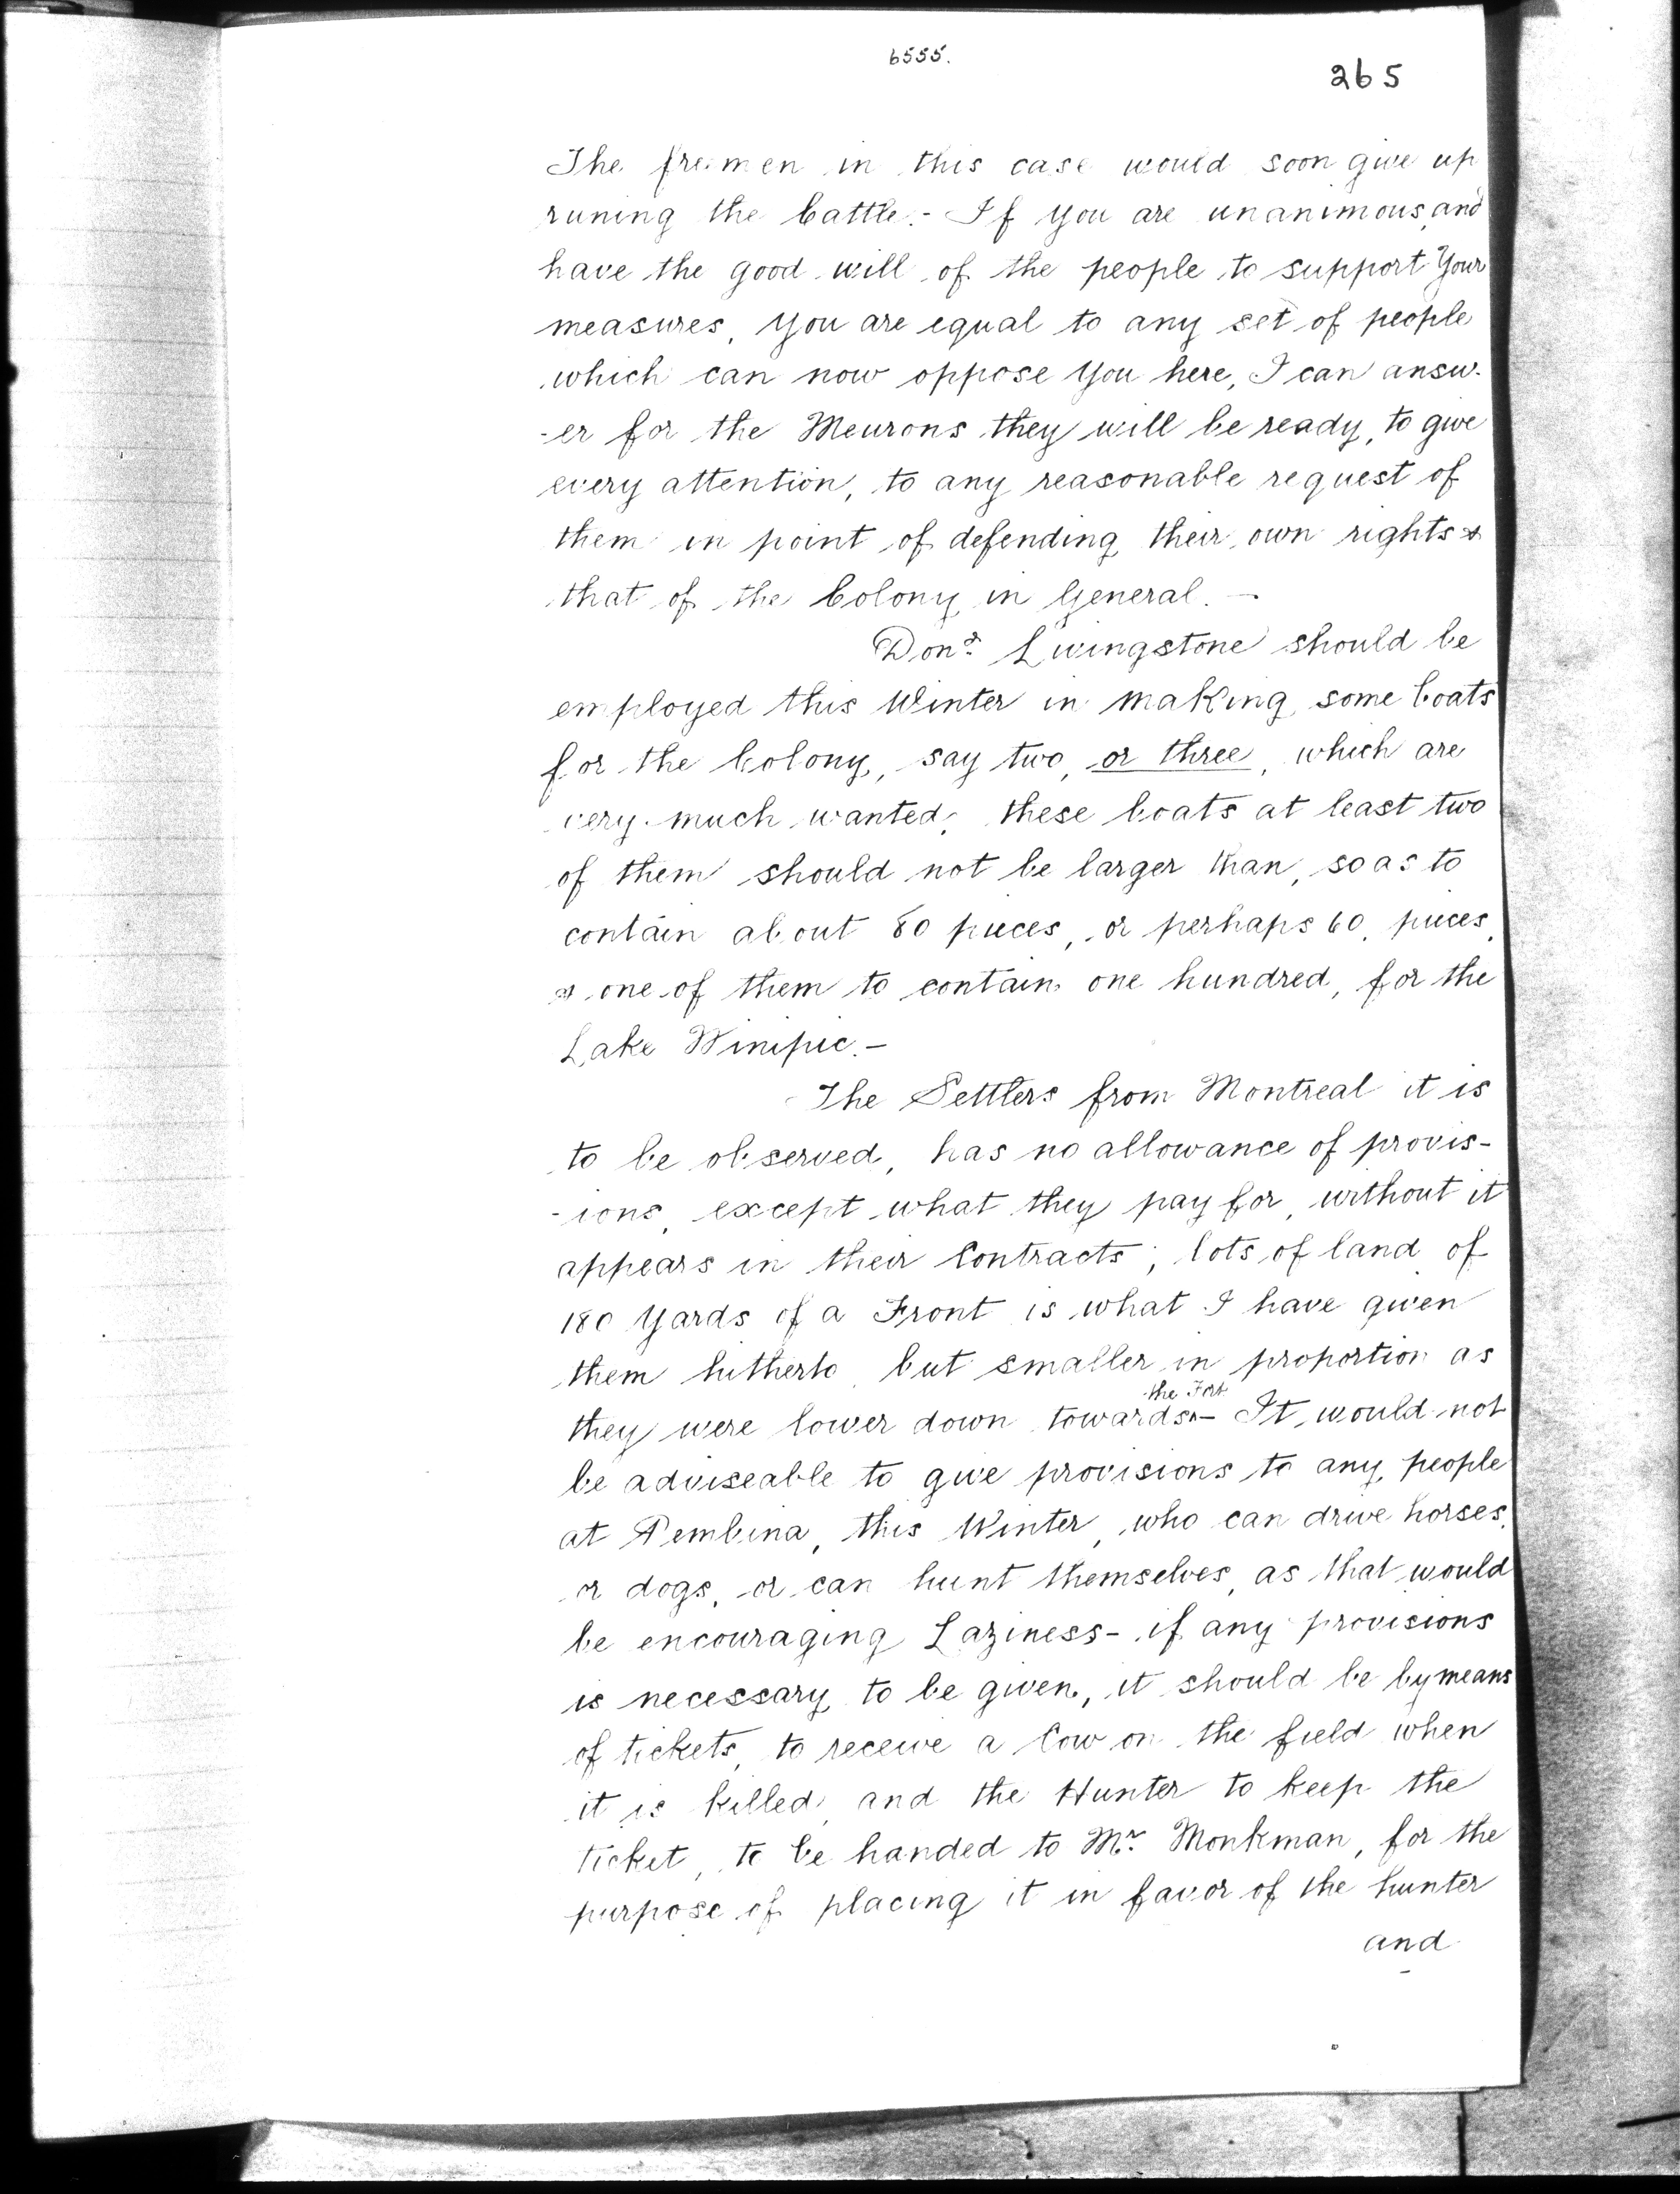 6555.
265
The freemen in this case would soon give up
runing the Cattle.- If you are unanimous, and
have the good will of the people to support Your
measures, You are equal to any set of people
which can now oppose You here, I can answ-
-er for the Meurons they will be ready, to give
every attention, to any reasonable request of
them in point of defending their own rights &
that of the Colony in General. -
Don.d Livingstone should be
employed this Winter in making some boats
for the Colony, say two, or three, which are
very much wanted, these boats at least two
of them should not be larger than, so as to
contain about 80 pieces, or perhaps 60 pieces,
& one of them to contain one hundred, for the
Lake Winipic.-
The Settlers from Montreal it is
to be observed, has no allowance of provis-
-ions, except what they pay for, without it
appears in their Contracts; lots of land of
180 Yards of a Front is what I have given
them hitherto but smaller in proportion as
they were lower down towards ^ the Fort - It would not
be adviseable to give provisions to any people
at Pembina, this Winter, who can drive horses,
or dogs, or can hunt themselves, as that would
be encouraging Laziness- if any provisions
is necessary to be given, it should be by means
of tickets, to receive a Cow on the field when
it is killed, and the Hunter to keep the
ticket, to be handed to Mr. Monkman, for the
purpose of placing it in favor of the hunter
and